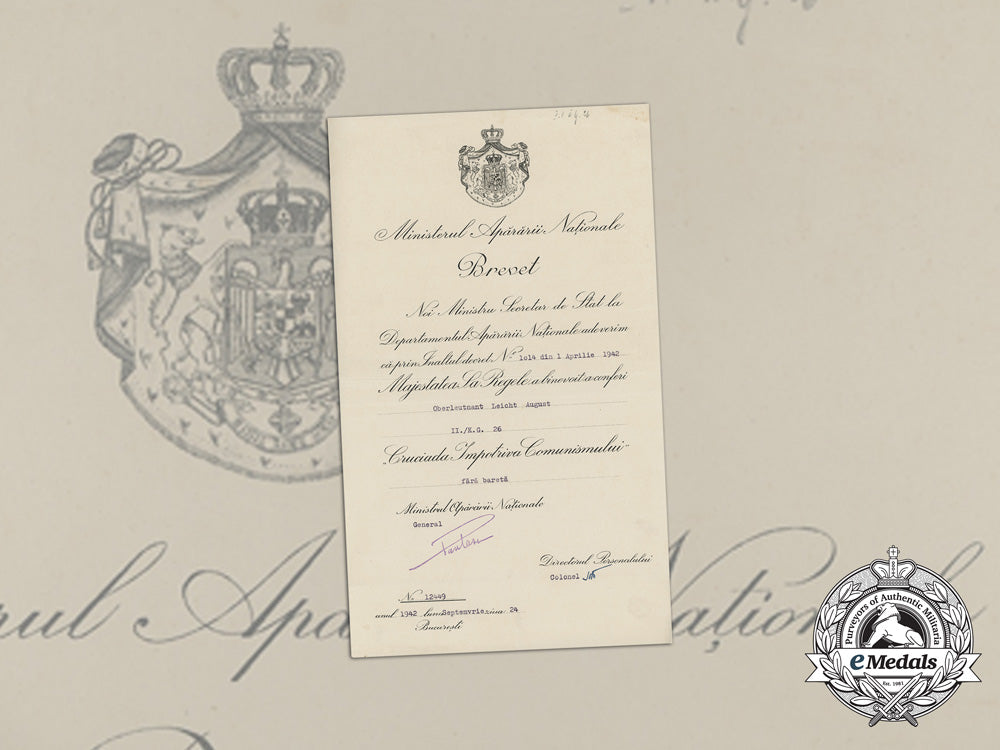 Ministerul Apărării Naționale
Brevet
Noi Ministru Secretar de Stat la
Departamentul Apărării Naționale adeverim
că prin Inaltul decret Nº 1014 din 1 Aprilie 1942
Majestatea Sa Regele a binevoit a conferi
Oberleutnant Leicht August
II./K.G. 26
„Cruciada Impotriva Comunismului"
fără baretă
Ministrul Apărării Naționale
General
Directorul Personalului
Colonel
N. 12449
anul 1942 luna Septemvrie ziua 24
București
Purveyors of Authentic Militaria
eMedals
Est. 1981